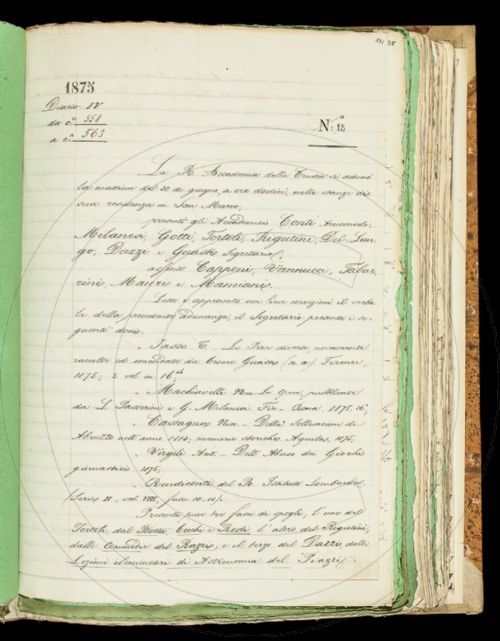 1875
Diario IV
da c. 558
a c. 563
N: 15
La R. Accademia della Crusca si adunò
la mattina del 30 di giugno, a ore dodici, nelle stanze di
sua residenza in San Marco,
presenti gli Accademici Conti Arciconsolo,
Milanesi, Gotti, Tortoli, Rigutini, Del Lun-
go, Dazzi e Guasti Segretario;
assenti Capponi, Vannucci, Tabar-
rini, Mauri e Mamiani.
Letto e approvato con lievi correzioni il verba-
le della precedente adunanza, il Segretario presenta i se-
guenti doni:
Tasso T. - Le Prose diverse nuovamente
raccolte ed emendate da Cesare Guasti (n. a.) Firenze,
1875; 2 vol. in 16°
Machiavelli Nic. Le Opere, pubblicate
da L. Passerini e G. Milanesi. Fir. - Roma, 1875.
Cassagna - Della Sollevazione di
Abruzzo nell'anno 1814, memoria storica. Aquila, 1875;
Virgili Ant. - Dell'Abuso dei Giochi
ginnastici 1875;
Rendiconti del R. Istituto Lombardo.
(Serie II, vol. VIII, fasc. 10-11).
Presenta pur tre fasci di spogli, l'uno del
Tortoli, dal Redi; l'altro del Rigutini,
dalle Commedie del Razzi; e il terzo del Dazzi, dalle
Lezioni elementari di Astronomia del Piazzi.